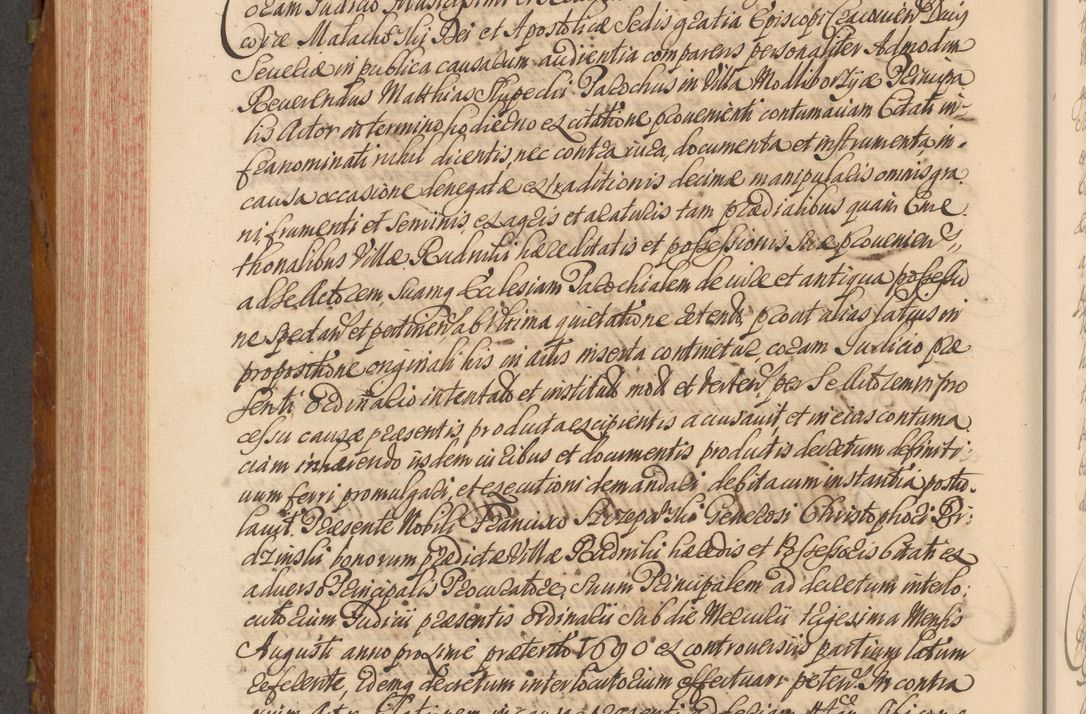 coram Judicio
codiæ Malachoſski Dei et Apostolicæ Sedis gratia Episcopi Cracovien Ducis
Severiæ in publica causarum audientia comparens personaliter Admodum
Reverendus Matthias Slupecki Parochus in Villa Modliborzyce Principa
lis Actor in termino hodierno ex citatione provenienti contumaciam Citati in-
franominati nihil dicentis, nec contra jura, documenta et instrumenta in
causa occasione denegatæ extraditionis decimæ manipularis omnis gra
ni, frumenti et seminis, ex agris et araturis tam prædialibus quam Cme
thonalibus Villæ Rudniki hæreditatis et possessionis suæ provenien
ad se Actorem, suamq Ecclesiam Parochialem de jure et antiqua possessio
ne spectan et pertinen ab ultima quietatione retent, prout alias latius in
propositione originali his in actis inserta continetur, coram Judicio præ
senti Ordinario intentato et institut mot et verten per se Actorem in pro
cessu causæ præsentis producta excipientis accusavit, et in ejus contuma
ciam inhærendo iisdem juribus et documentis productis decretum definiti
vum ferri, promulgari, et executioni demandari debita cum instantia postu-
lavit. Præsente Nobili Francisco Generosi Christophori
bonorum prædictæ Villæ Rudniki hæredis et Possessoris Citati ex
adverso Principalis Procuratore, suum Principalem ad decretum interlo:
cutorium Judicii præsentis ordinarii sub die Mercurii trigesima Mensis
Augusti anno proxime præterito 1690 ex controversiis partium latum
referente, idemq decretum interlocutorium effectuari peten. In contra